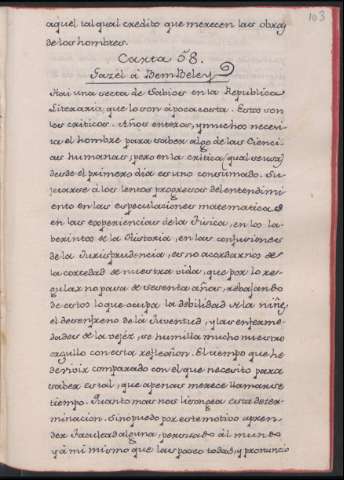 103
aquel tal qual credito que merecen las obras
de los hombres.
Carta 58.
Gazèl á Ben-Beley
Hai una secta de Sabios en la Republica
Literaria, que lo son á poca costa. Estos son
los criticos. Años enteros, y muchos neces
ita el hombre para saber algo de las Cienci
as humanas; pero en la critica (qual se usa)
desde el primero dia es uno consumado. Su
jetarse á los lentos progresos del entendimi
ento en las especulaciones matematicas
en las experiencias de la Fisica, en los la
berintos de la Historia, en las confusiones
de la Jurisprudencia, es no acordarnos de
la cortedad de nuestra vida, que por lo re
gular no pasa de sesenta años, rebajando
de estos lo que ocupa la debilidad de la niñez,
el desenfreno de la Juventud, y las enferme
dades de la vejez, se humilla mucho nuestro
orgullo con esta reflexion. El tiempo que he
de vivir comparado con el que necesito para
saber es tal, que apenas merece llamarse
tiempo. Quanto mas nos lisongea esta deter
minacion. Si no puedo por este motivo apren
der facultad alguna; persuado al mundo
y á mi mismo que las poseo todas, y pronuncio